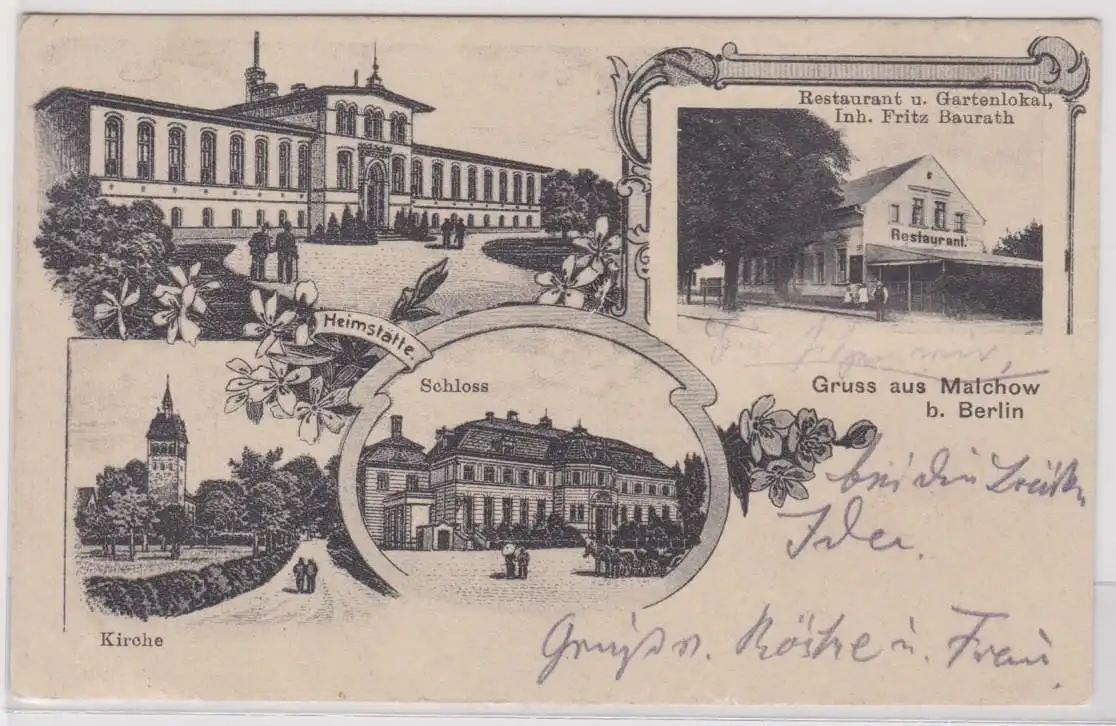 Restaurant u. Gartenlokal,
Inh. Fritz Baurath
Restaurant.
Heimstätte.
Schloss
Gruss aus Malchow
b. Berlin
bei den
Ida.
Kirche
Gruß v. u. Frau